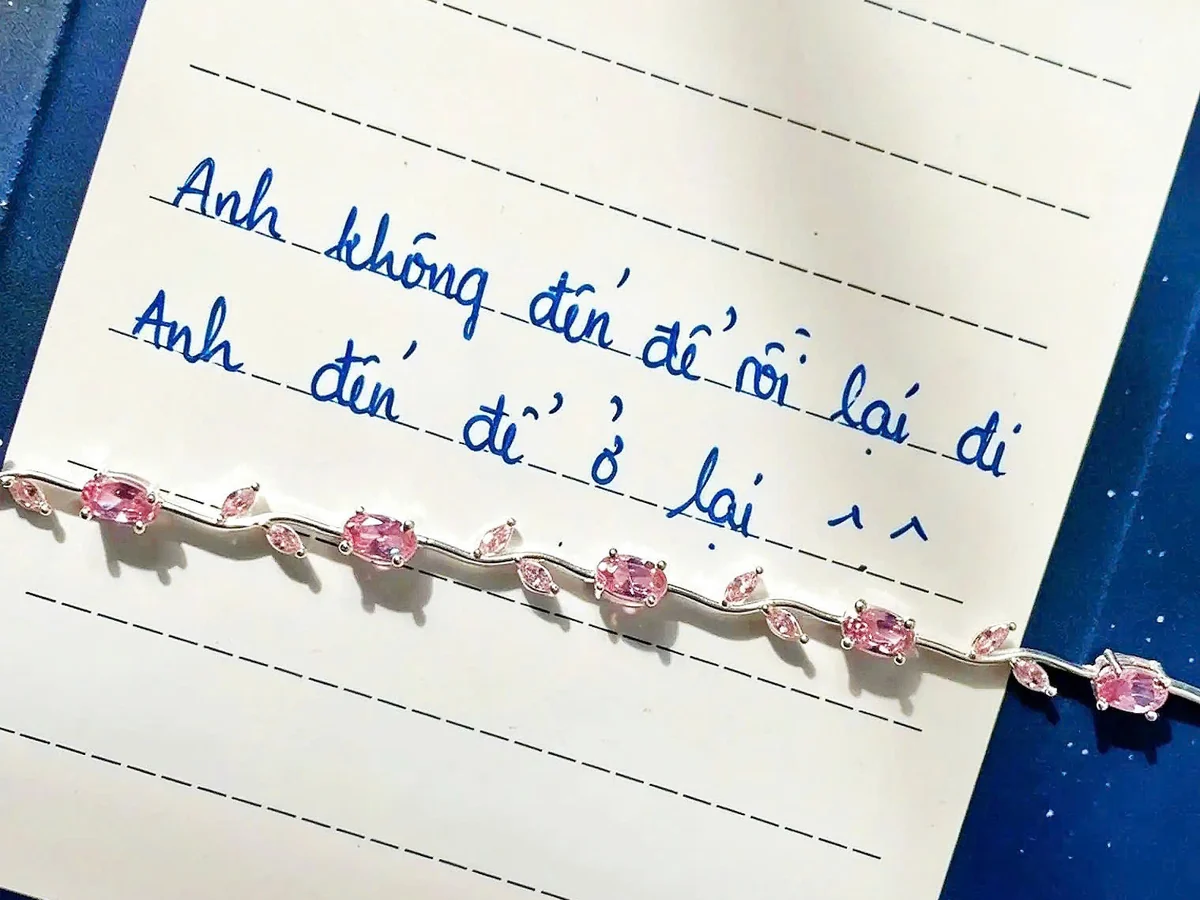 Anh không đến để rồi lại đi
Anh đến để ở lại ^ ^